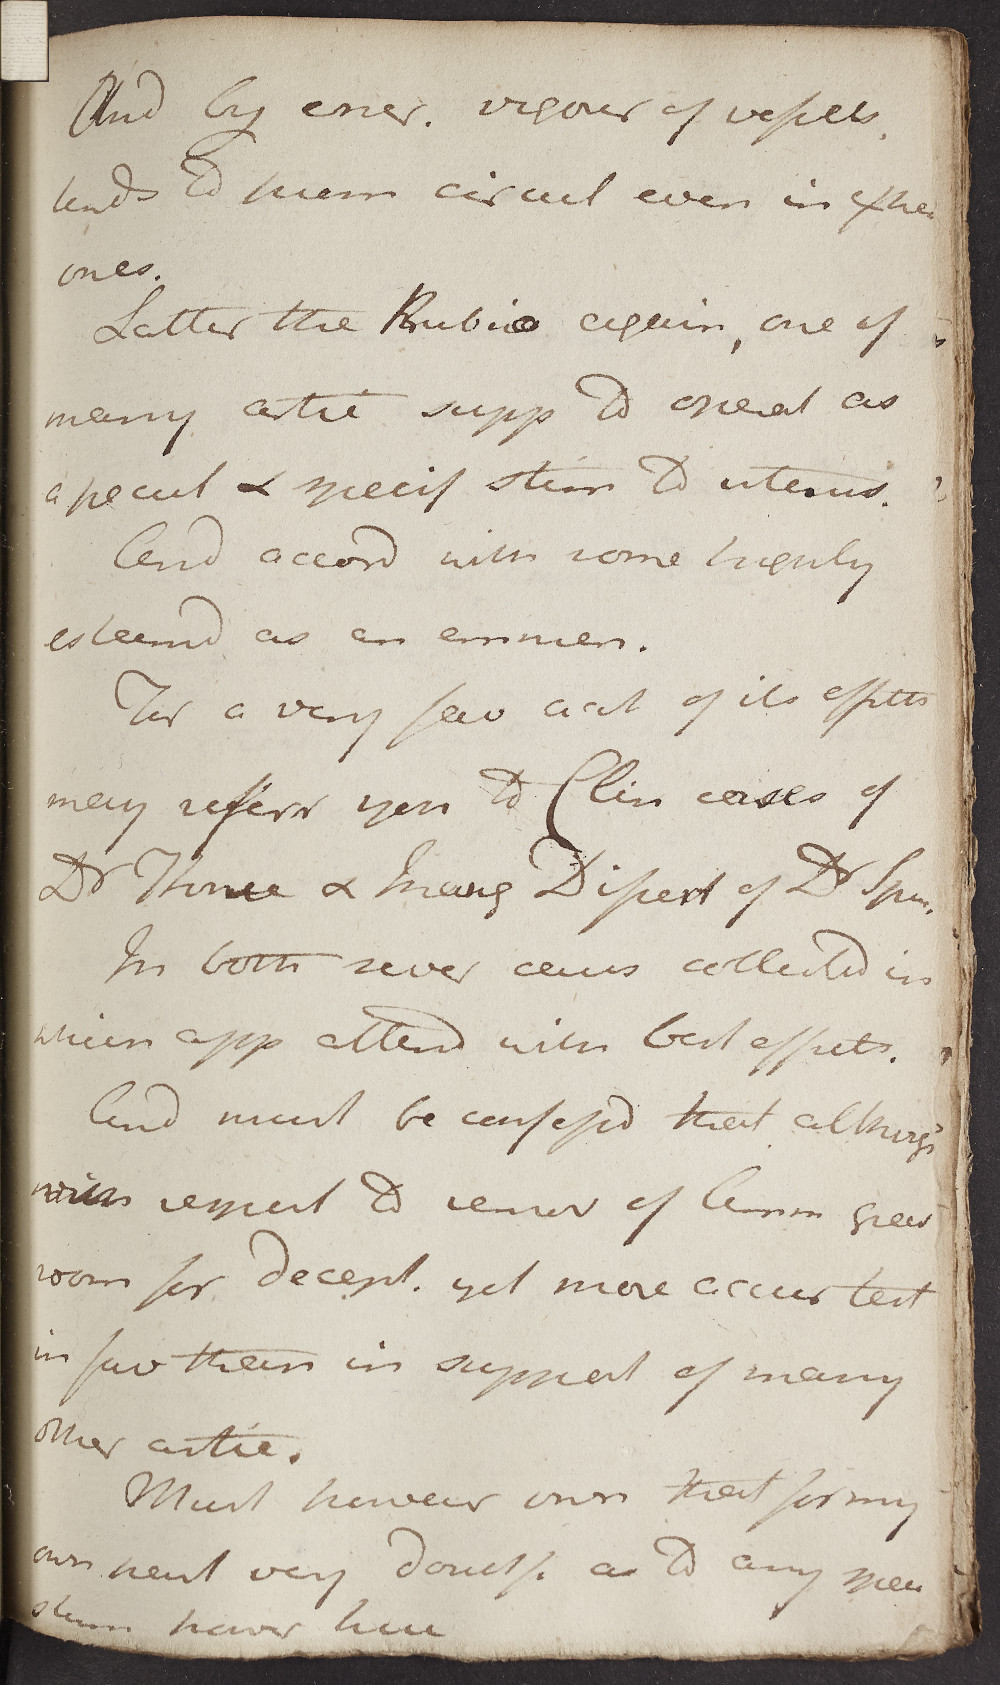 And by encr. vigour of vessels.
tends to prom circul even in extre
ones.
Latter the Rubia again, one of
many artic supp to operat as
a pecul & specif stim to uterus.
And accord with some highly
esteemd as an emmen.
For a very few acct of its effects
may referr you to Clin cases of
Dr Home & Inaug Dissert of Dr
In both sever cases collected in
which app attend with best effects.
And must be confessd that although
with respect to remov of Amen great
room for decept. yet more accur test
in fav than in support of many
other artic.
Must however own that for my
own part very doubtf. as to any spec
stim power here